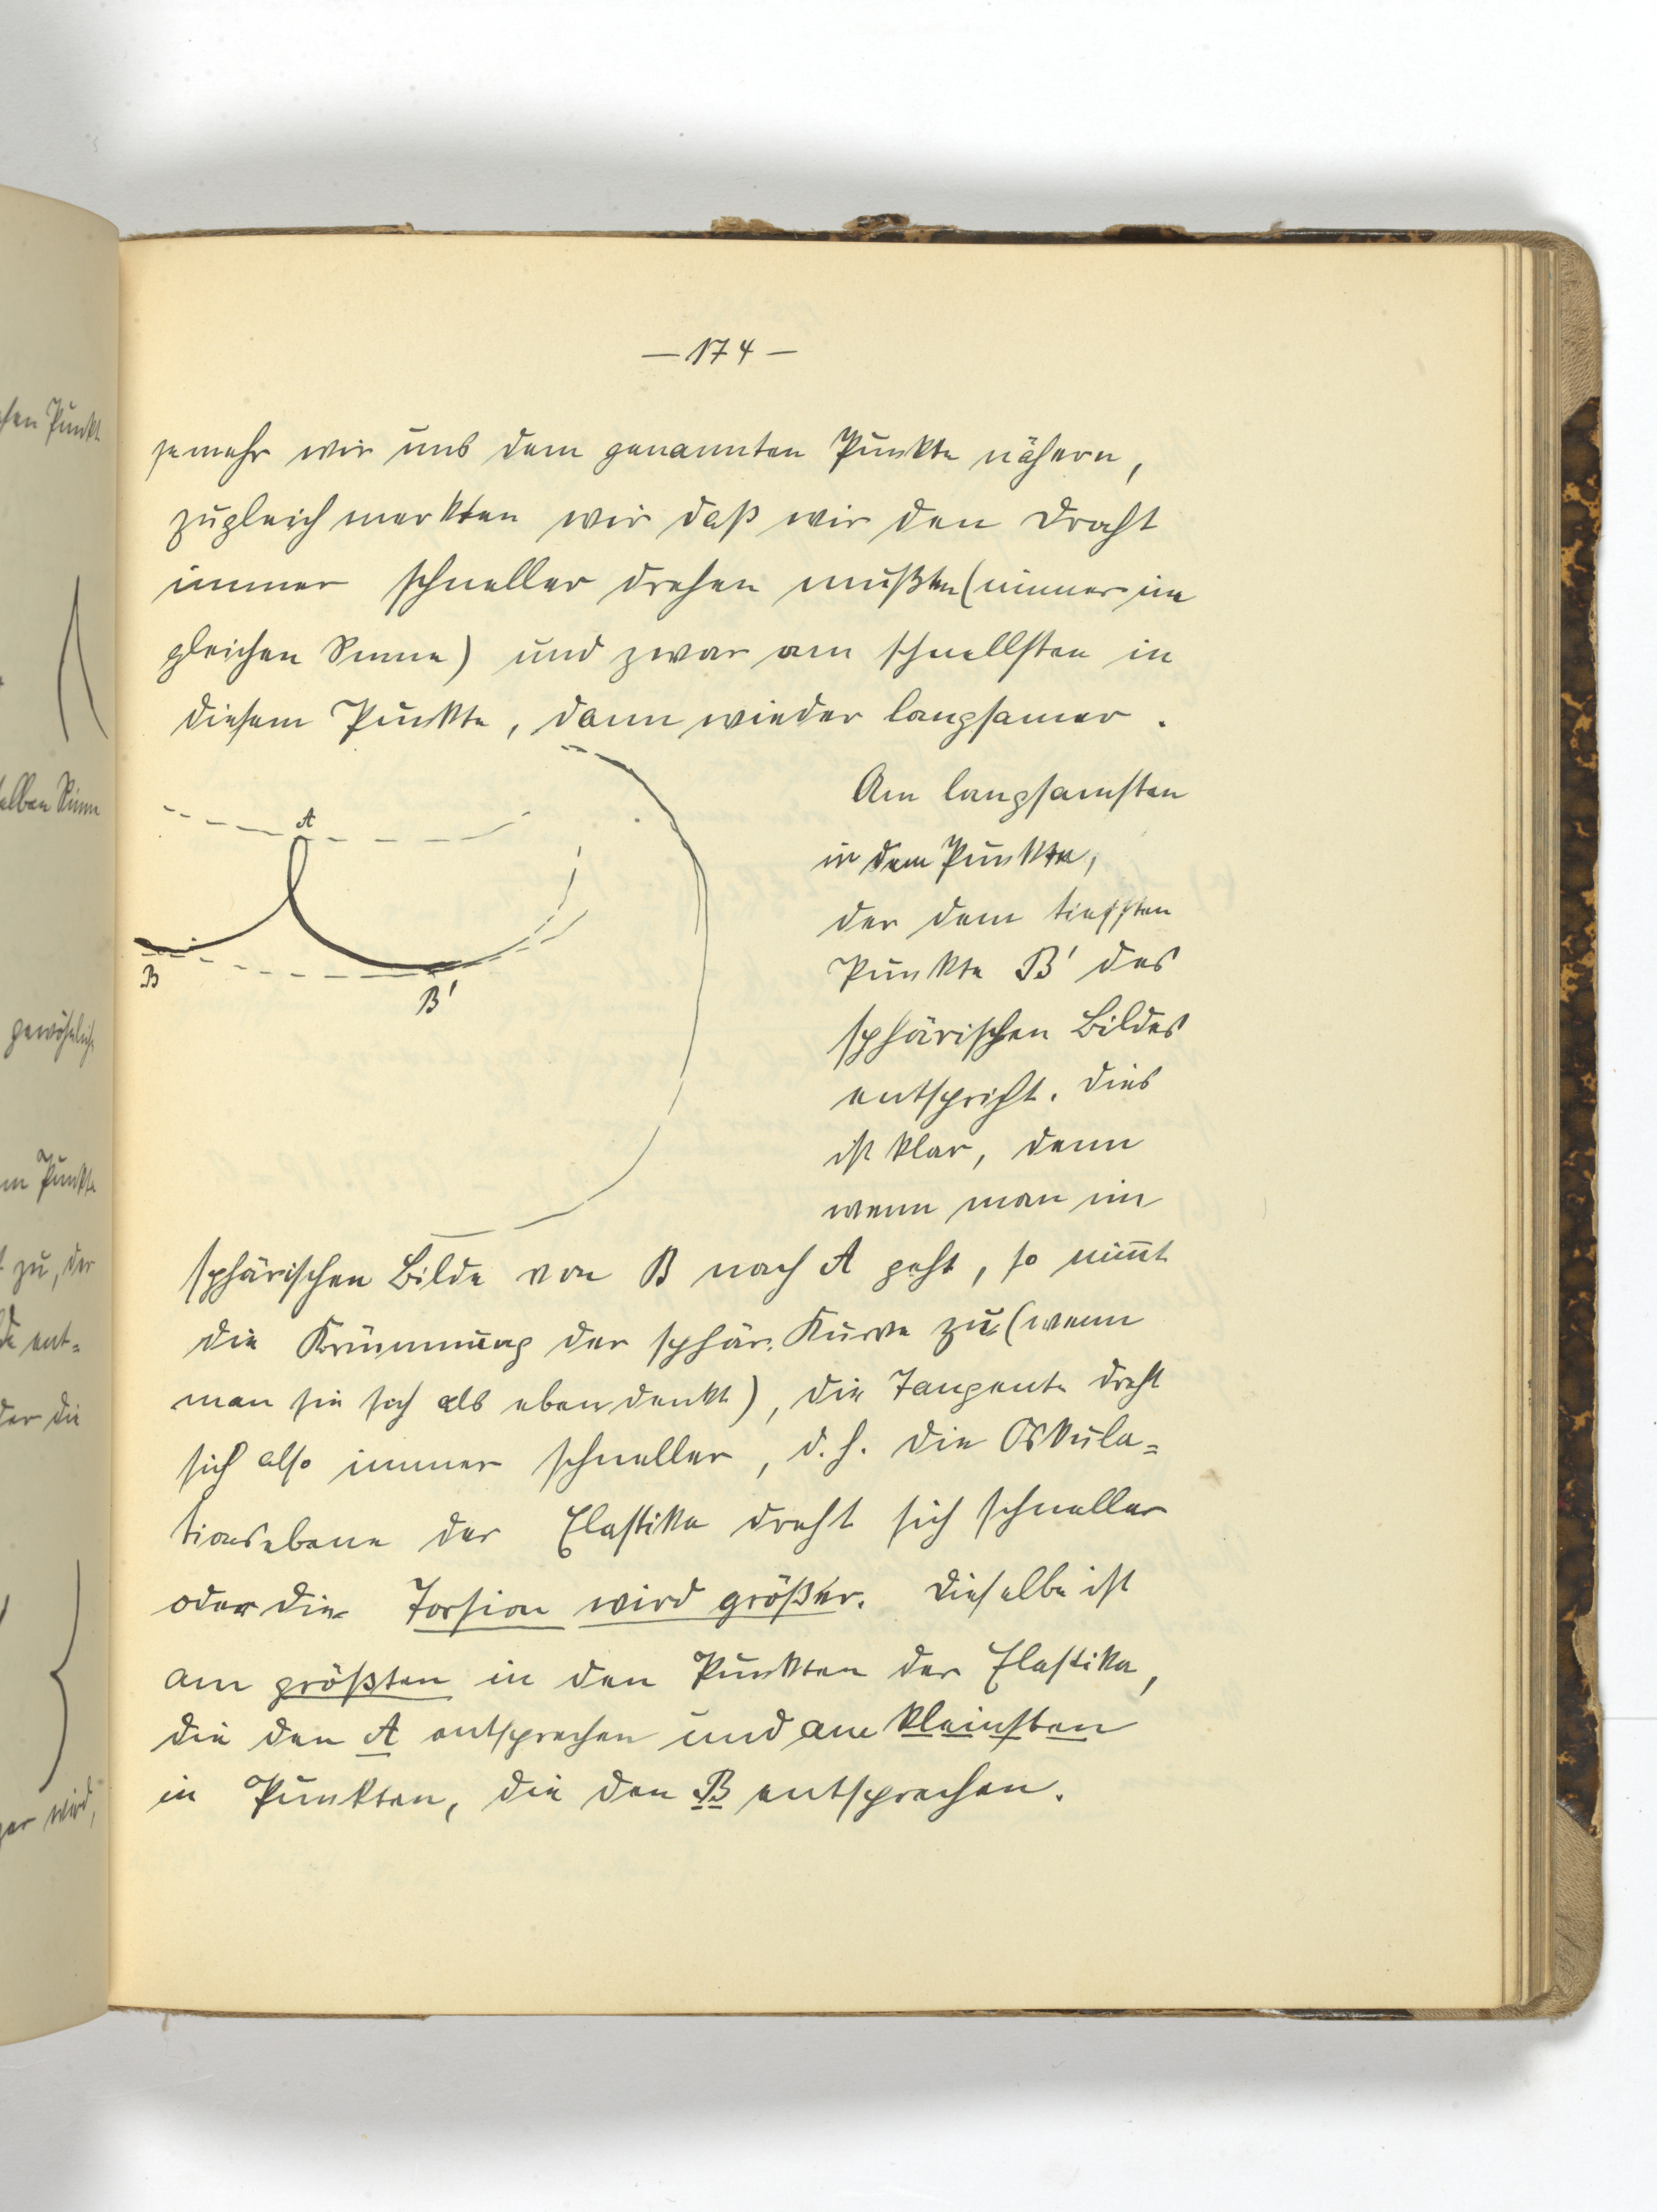 — 174 —
jemehr wir uns dem genannten Punkte nähern,
zugleich merkten wir daß wir den Draht
immer schneller drehen mußten (immer im
gleichen Sinne) und zwar am schnellsten in
diesem Punkte, dann wieder langsamer.
Am langsamsten
in dem Punkte,
der dem tiefsten
Punkte B' des
sphärischen Bildes
entspricht. Dies
ist klar, denn
wenn man im
A
B
B'
sphärischen Bilde von B nach A geht, so nim̅t
die Krümmung der sphär. Kurve zu (wenn
man sie sich als eben denkt), die Tangente dreht
sich also immer schneller, d.h. die Oskula=
tionsebene der Elastika dreht sich schneller
oder die Torsion wird größer. Dieselbe ist
am größten in den Punkten der Elastika,
die den A entsprechen und am kleinsten
in Punkten, die den B entsprechen.
Punkt
selben Sinn
gewöhnlich
Punkte
zu, der
ent=
der die
wird,